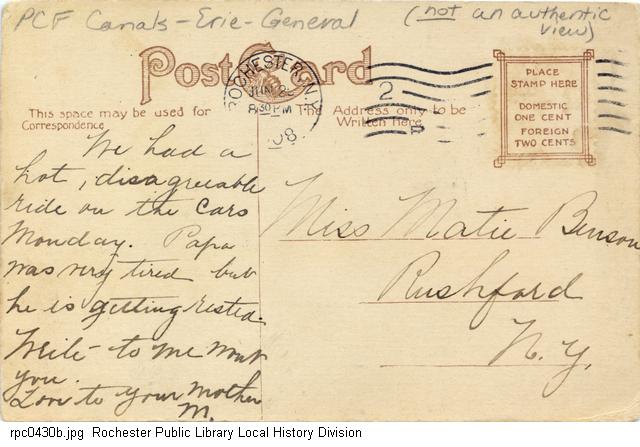 PCF Canals - Erie - General
(not an authentic view)
Post Card
ROCHESTER, N.Y.
JUN
830 PM
08
2
PLACE
STAMP HERE
DOMESTIC
ONE CENT
FOREIGN
TWO CENTS
This space may be used for
Correspondence
The Address only to be
Written here
We had a
hot, disagreeable
ride on the cars
Monday. Papa
was very tired but
he is getting rested.
Write to me wont
you.
Love to your Mother
M.
Miss Matie Benson
Rushford
N.Y.
rpc0430b.jpg Rochester Public Library Local History Division